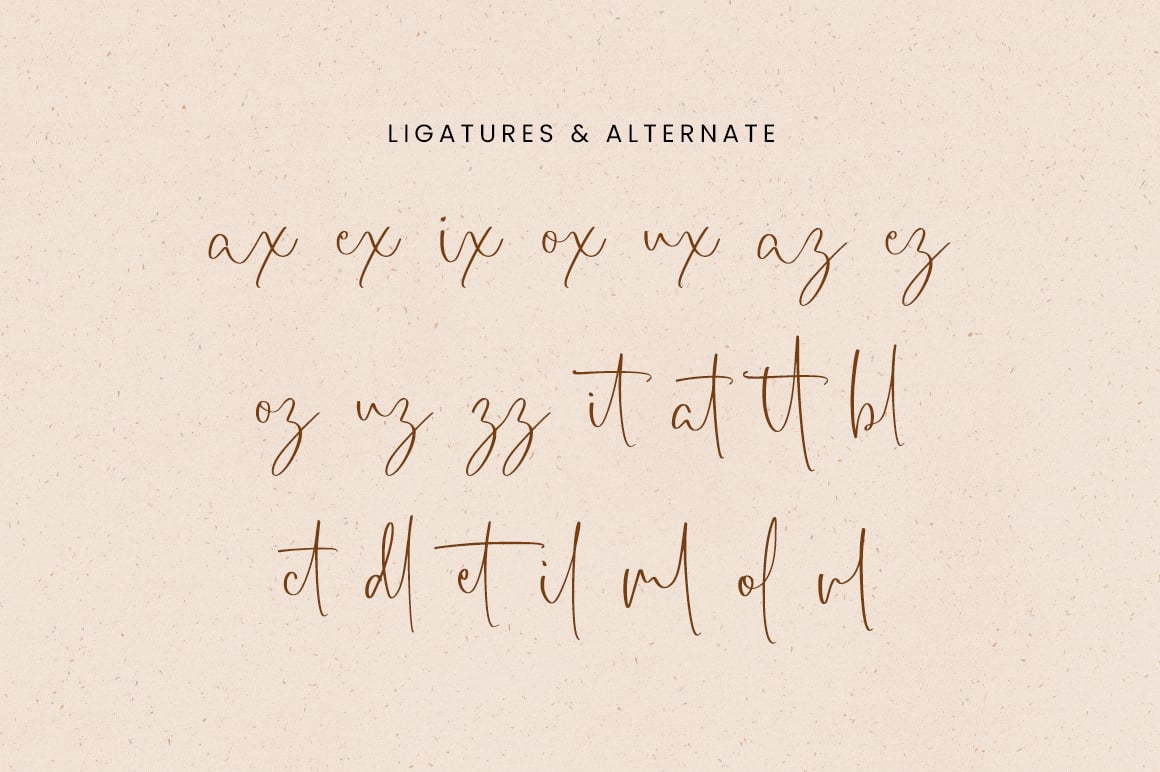 LIGATURES & ALTERNATE
ax ex ix ox ux az ez
oz uz zz it at tt bl
ct dl et il ml ol nl